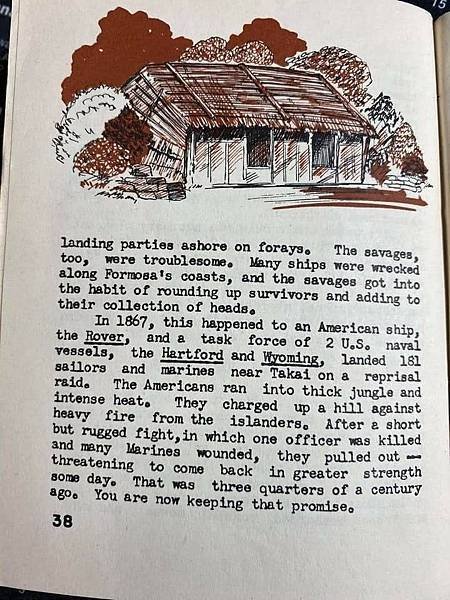 landing parties ashore on forays. The savages,
too, were troublesome. Many ships were wrecked
along Formosa's coasts, and the savages got into
the habit of rounding up survivors and adding to
their collection of heads.
In 1867, this happened to an American ship,
the Rover, and a task force of 2 U.S. naval
vessels, the Hartford and Wyoming, landed 181
sailors and marines near Takai on a reprisal
raid. The Americans ran into thick jungle and
intense heat. They charged up a hill against
heavy fire from the islanders. After a short
but rugged fight, in which one officer was killed
and many Marines wounded, they pulled out —
threatening to come back in greater strength
some day. That was three quarters of a century
ago. You are now keeping that promise.
38
15